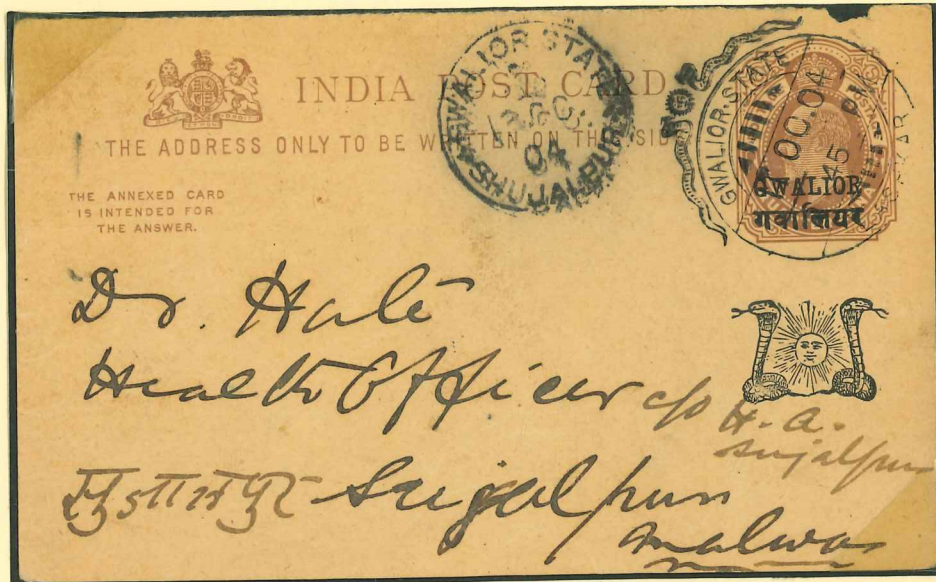 INDIA POST CARD
THE ADDRESS ONLY TO BE WRITTEN ON THIS SIDE
THE ANNEXED CARD
IS INTENDED FOR
THE ANSWER.
GWALIOR STATE
04
SHUJALPUR
GWALIOR·STATE
OC.04
GWALIOR
गवालियर
Dr. Hate
Health Officer c/o H. A.
Sujalpur
सुजालपुर Sujalpur
Malwa